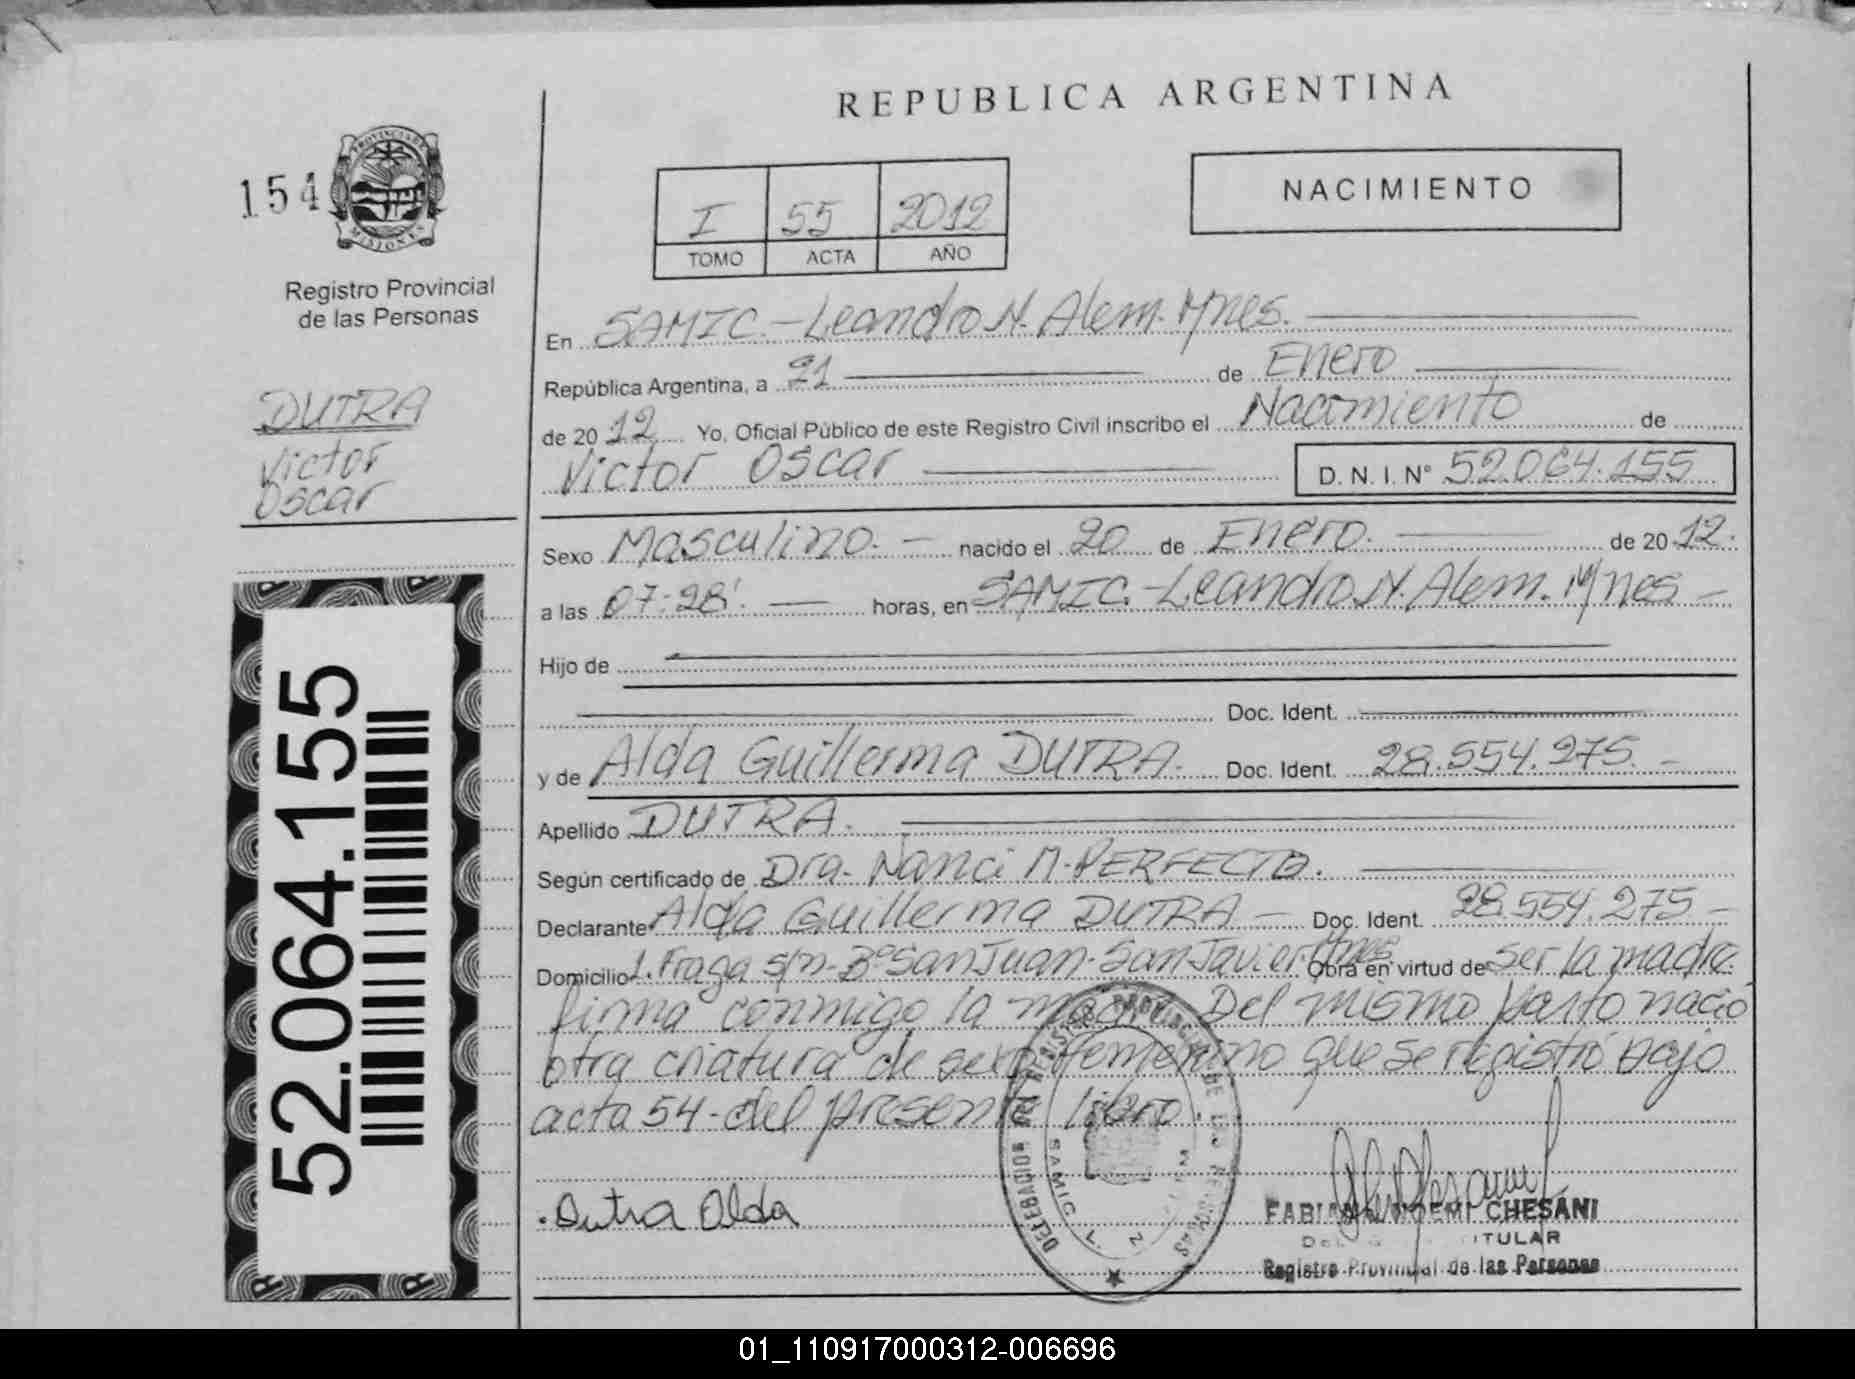 REPUBLICA ARGENTINA
154
PROVINCIA DE
MISIONES
Registro Provincial
de las Personas
I 55 2012
TOMO ACTA AÑO
NACIMIENTO
En SAMIC.-Leandro N. Alem. Mnes.
República Argentina, a 21 de Enero
de 2012 Yo, Oficial Público de este Registro Civil inscribo el Nacimiento de
Victor Oscar D.N.I. N° 52.064.155
DUTRA
Victor
Oscar
Sexo Masculino. nacido el 20 de Enero. de 2012.
a las 07:28'. horas, en SAMIC.-Leandro N. Alem. Mnes
Hijo de
Doc. Ident.
y de Alda Guillerma DUTRA. Doc. Ident. 28.554.275.
Apellido DUTRA.
Según certificado de Dra. Nanci M. PERFECTO.
Declarante Alda Guillerma DUTRA Doc. Ident. 28.554.275
Domicilio L. Fraga s/n-B° San Juan-San Javier Mnes Obra en virtud de ser la madre.
firma conmigo la madre. Del mismo parto nació
otra criatura de sexo femenino que se registró bajo
acta 54-del presente libro.
52.064.155
Dutra Alda
DELEGACION REGISTRO PROVINCIAL DE LAS PERSONAS
SAMIC L. N.
FABIANA NOEMI CHESANI
TITULAR
Registro Provincial de las Personas
01_110917000312-006696